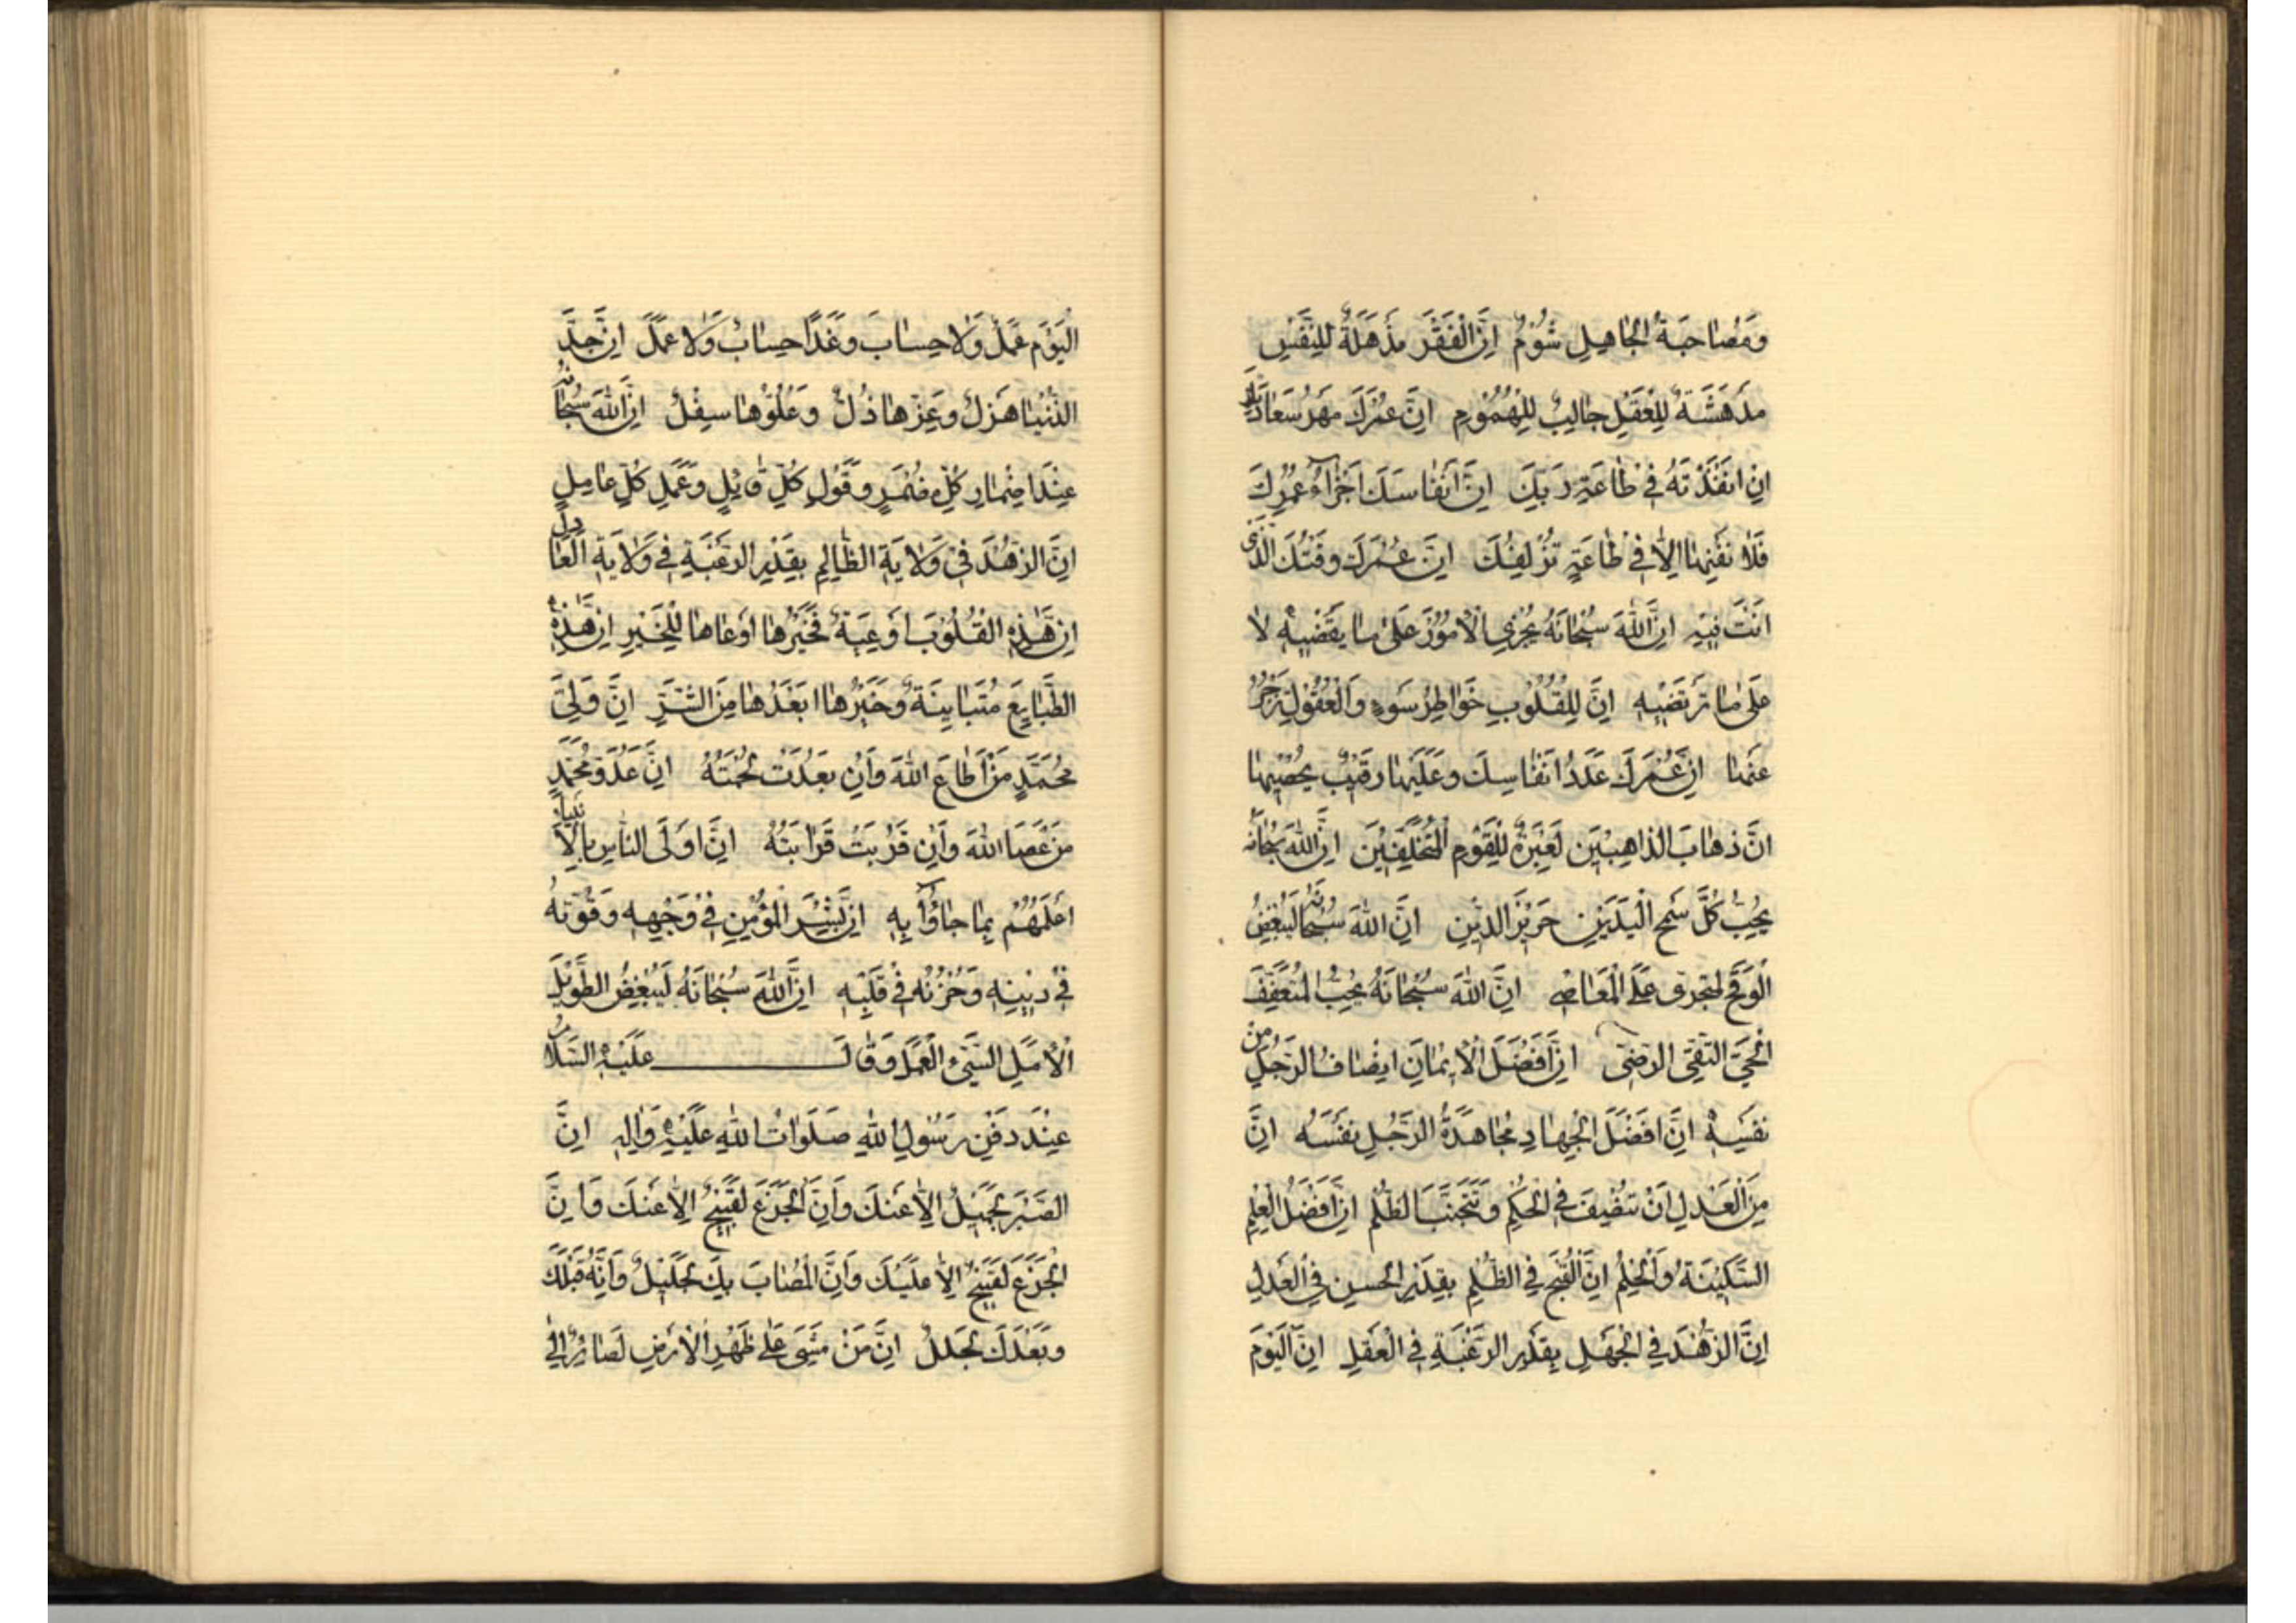 وَمُصٰاحَبَةُ الْجٰاهِلِ شُوْمٌ اِنَّ الْفَقْرَ مَذْهَلَةٌ لِلنَّفْسِ
مَدْهَشَةٌ لِلْعَقْلِ جٰالِبٌ لِلْهُمُوْمِ اِنَّ عُمْرَكَ مَهْرُ سَعٰادَتِكَ
اِنْ اَنْفَذْتَهُ فِيْ طٰاعَةِ رَبِّكَ اِنَّ اَنْفٰاسَكَ اَجْزٰاءُ عُمْرِكَ
فَلٰا تُفْنِهٰا اِلّٰا فِيْ طٰاعَةٍ تُزْلِفُكَ اِنَّ عُمْرَكَ وَقْتُكَ الَّذِيْ
اَنْتَ فِيْهِ اِنَّ اللّٰهَ سُبْحٰانَهُ يُجْرِي الْاُمُوْرَ عَلٰى مٰا يَقْضِيْهِ لٰا
عَلٰى مٰا تَرْتَضِيْهِ اِنَّ لِلْقُلُوْبِ خَوٰاطِرَ سَوْءٍ وَالْعُقُوْلُ تَزْجُرُ
عَنْهٰا اِنَّ عُمْرَكَ عَدَدُ اَنْفٰاسِكَ وَعَلَيْهٰا رَقِيْبٌ يُحْصِيْهٰا
اِنَّ ذَهٰابَ الذّٰاهِبِيْنَ لَعِبْرَةٌ لِلْقَوْمِ الْمُتَخَلِّفِيْنَ اِنَّ اللّٰهَ سُبْحٰانَهُ
يُحِبُّ كُلَّ سَمْحِ الْيَدَيْنِ حَرِيْزِ الدِّيْنِ اِنَّ اللّٰهَ سُبْحٰانَهُ لَيُبْغِضُ
الْوَقِحَ الْمُتَجَرِّيَ عَلَى الْمَعٰاصِيْ اِنَّ اللّٰهَ سُبْحٰانَهُ يُحِبُّ الْمُتَعَفِّفَ
الْحَيِيَّ التَّقِيَّ الرَّضِيَّ اِنَّ اَفْضَلَ الْاِيْمٰانِ اِنْصٰافُ الرَّجُلِ مِنْ
نَفْسِهِ اِنَّ اَفْضَلَ الْجِهٰادِ مُجٰاهَدَةُ الرَّجُلِ نَفْسَهُ اِنَّ
مِنَ الْعَدْلِ اَنْ تُنْصِفَ فِي الْحُكْمِ وَتَجْتَنِبَ الظُّلْمَ اِنَّ اَفْضَلَ الْعِلْمِ
السَّكِيْنَةُ وَالْحِلْمُ اِنَّ الْقُبْحَ فِي الظُّلْمِ بِقَدْرِ الْحُسْنِ فِي الْعَدْلِ
اِنَّ الزُّهْدَ فِي الْجَهْلِ بِقَدْرِ الرَّغْبَةِ فِي الْعَقْلِ اِنَّ الْيَوْمَ
الْيَوْمَ عَمَلٌ وَلٰا حِسٰابَ وَغَدًا حِسٰابٌ وَلٰا عَمَلَ اِنَّ جِدَّ
الدُّنْيٰا هَزْلٌ وَعِزَّهٰا ذُلٌّ وَعُلُوَّهٰا سِفْلٌ اِنَّ اللّٰهَ سُبْحٰانَهُ
عِنْدَ اِضْمٰارِ كُلِّ مُضْمِرٍ وَقَوْلِ كُلِّ قٰائِلٍ وَعَمَلِ كُلِّ عٰامِلٍ
اِنَّ الزُّهْدَ فِيْ وِلٰايَةِ الظّٰالِمِ بِقَدْرِ الرَّغْبَةِ فِيْ وِلٰايَةِ الْعٰادِلِ
اِنَّ هٰذِهِ الْقُلُوْبَ اَوْعِيَةٌ فَخَيْرُهٰا اَوْعٰاهٰا لِلْخَيْرِ اِنَّ هٰذِهِ
الطَّبٰايِعَ مُتَبٰايِنَةٌ وَخَيْرُهٰا اَبْعَدُهٰا مِنَ الشَّرِّ اِنَّ وَلِيَّ
مُحَمَّدٍ مَنْ اَطٰاعَ اللّٰهَ وَاِنْ بَعُدَتْ لُحْمَتُهُ اِنَّ عَدُوَّ مُحَمَّدٍ
مَنْ عَصَا اللّٰهَ وَاِنْ قَرُبَتْ قَرٰابَتُهُ اِنَّ اَوْلَى النّٰاسِ بِالْاَنْبِيٰاءِ
اَعْلَمُهُمْ بِمٰا جٰاؤُا بِهِ اِنَّ بِشْرَ الْمُؤْمِنِ فِيْ وَجْهِهِ وَقُوَّتَهُ
فِيْ دِيْنِهِ وَحُزْنَهُ فِيْ قَلْبِهِ اِنَّ اللّٰهَ سُبْحٰانَهُ لَيُبْغِضُ الطَّوِيْلَ
الْاَمَلِ السَّيِّئَ الْعَمَلِ وَقٰالَ عَلَيْهِ السَّلٰامُ
عِنْدَ دَفْنِ رَسُوْلِ اللّٰهِ صَلَوٰاتُ اللّٰهِ عَلَيْهِ وَاٰلِهِ اِنَّ
الصَّبْرَ لَجَمِيْلٌ اِلّٰا عَنْكَ وَاِنَّ الْجَزَعَ لَقَبِيْحٌ اِلّٰا عَنْكَ وَاِنَّ
الْجَزَعَ لَقَبِيْحٌ اِلّٰا عَلَيْكَ وَاِنَّ الْمُصٰابَ بِكَ لَجَلِيْلٌ وَاِنَّهُ قَبْلَكَ
وَبَعْدَكَ لَجَلَلٌ اِنَّ مَنْ مَشٰى عَلٰى ظَهْرِ الْاَرْضِ لَصٰائِرٌ اِلٰى